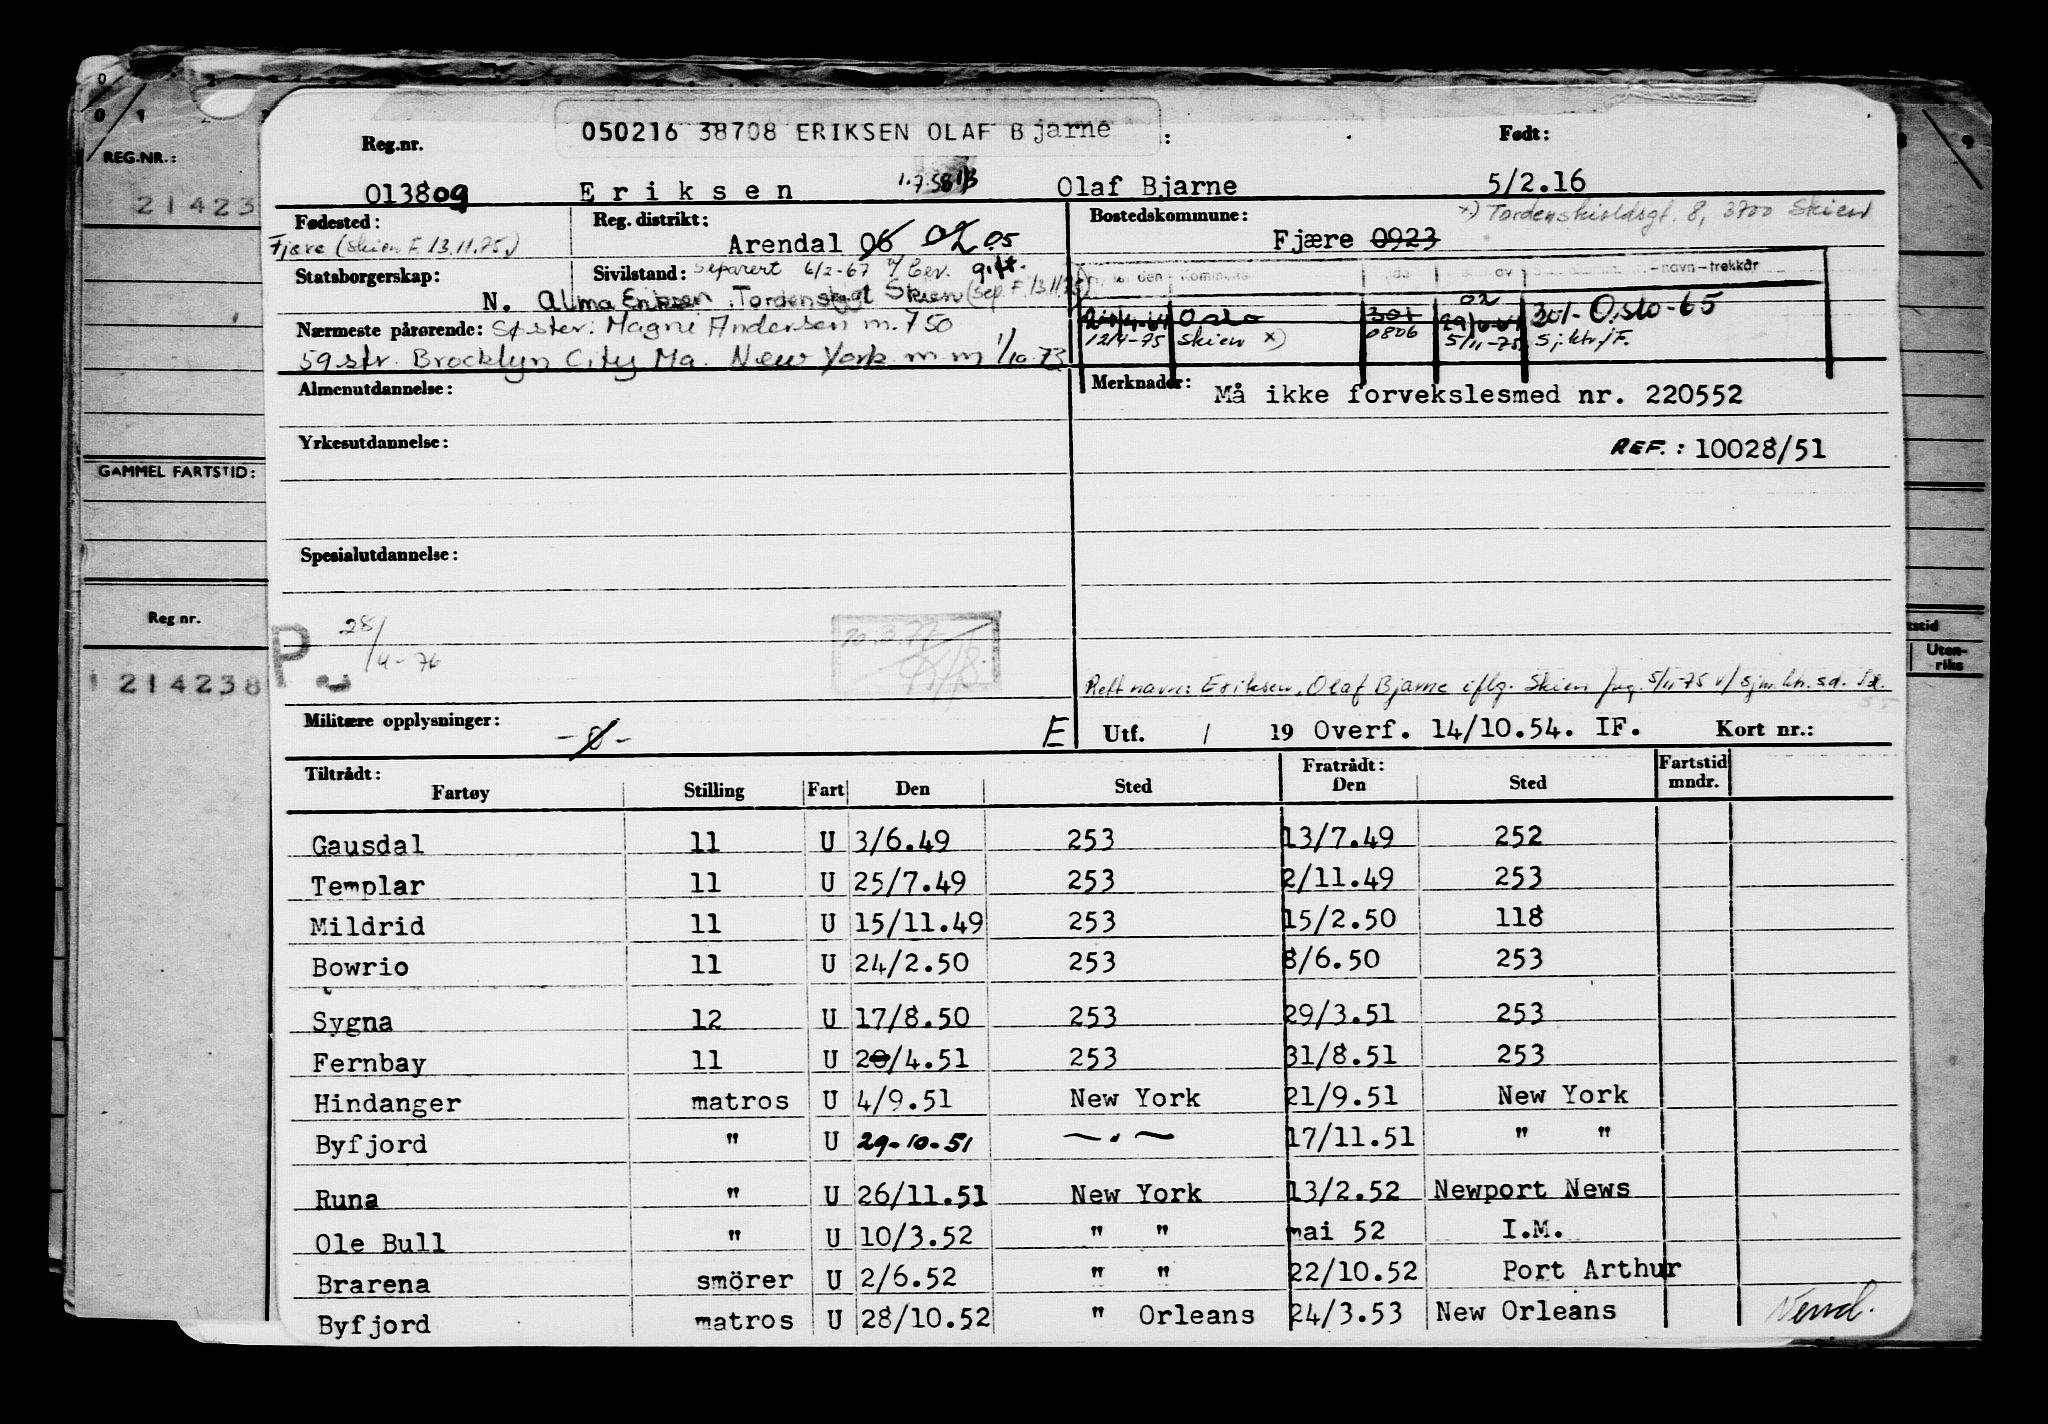 REG.NR.:
21423
GAMMEL FARTSTID:
Reg nr.
1214238
Uten-
riks
050216 38708 ERIKSEN OLAF Bjarne :
Reg.nr. Født:
013809 Eriksen 1.7.58 Olaf Bjarne 5/2.16
Fødested: Reg. distrikt: Bostedskommune: x) Tordenskioldsgt. 8, 3700 Skien
Fjære (Skien F. 13.11.75) Arendal 06 02 05 Fjære 0923
Statsborgerskap: Sivilstand: Separert 6/2-67 gift.
N. Alma Eriksen Tordenskgt Skien (sep. F. 13.11.75)
den Kommune av -navn-trekkår
Nærmeste pårørende: Søster: Magni Andersen m. 750
Oslo 301 02 301-Oslo-65
59 str. Brocklyn City Ma. New York m m 1/10-73
12/4-75 Skien x) 0806 5/11-75 Sj.ktr/F.
Almenutdannelse: Merknader: Må ikke forvekslesmed nr. 220552
Yrkesutdannelse: REF.: 10028/51
Spesialutdannelse:
P 28/4-76 20.3.77
Rett navn: Eriksen, Olaf Bjarne iflg. Skien 5/11-75 v/ sjm.
Militære opplysninger: -0- E Utf. / 19 Overf. 14/10.54. IF. Kort nr.:
Tiltrådt: Fratrådt: Fartstid
Fartøy Stilling Fart Den Sted Den Sted mndr.
Gausdal 11 U 3/6.49 253 13/7.49 252
Templar 11 U 25/7.49 253 2/11.49 253
Mildrid 11 U 15/11.49 253 15/2.50 118
Bowrio 11 U 24/2.50 253 8/6.50 253
Sygna 12 U 17/8.50 253 29/3.51 253
Fernbay 11 U 20/4.51 253 31/8.51 253
Hindanger matros U 4/9.51 New York 21/9.51 New York
Byfjord " U 29-10-51 —„— 17/11.51 " "
Runa " U 26/11.51 New York 13/2.52 Newport News
Ole Bull " U 10/3.52 " " mai 52 I.M.
Brarena smörer U 2/6.52 " " 22/10.52 Port Arthur
Byfjord matros U 28/10.52 " Orleans 24/3.53 New Orleans
Vend.